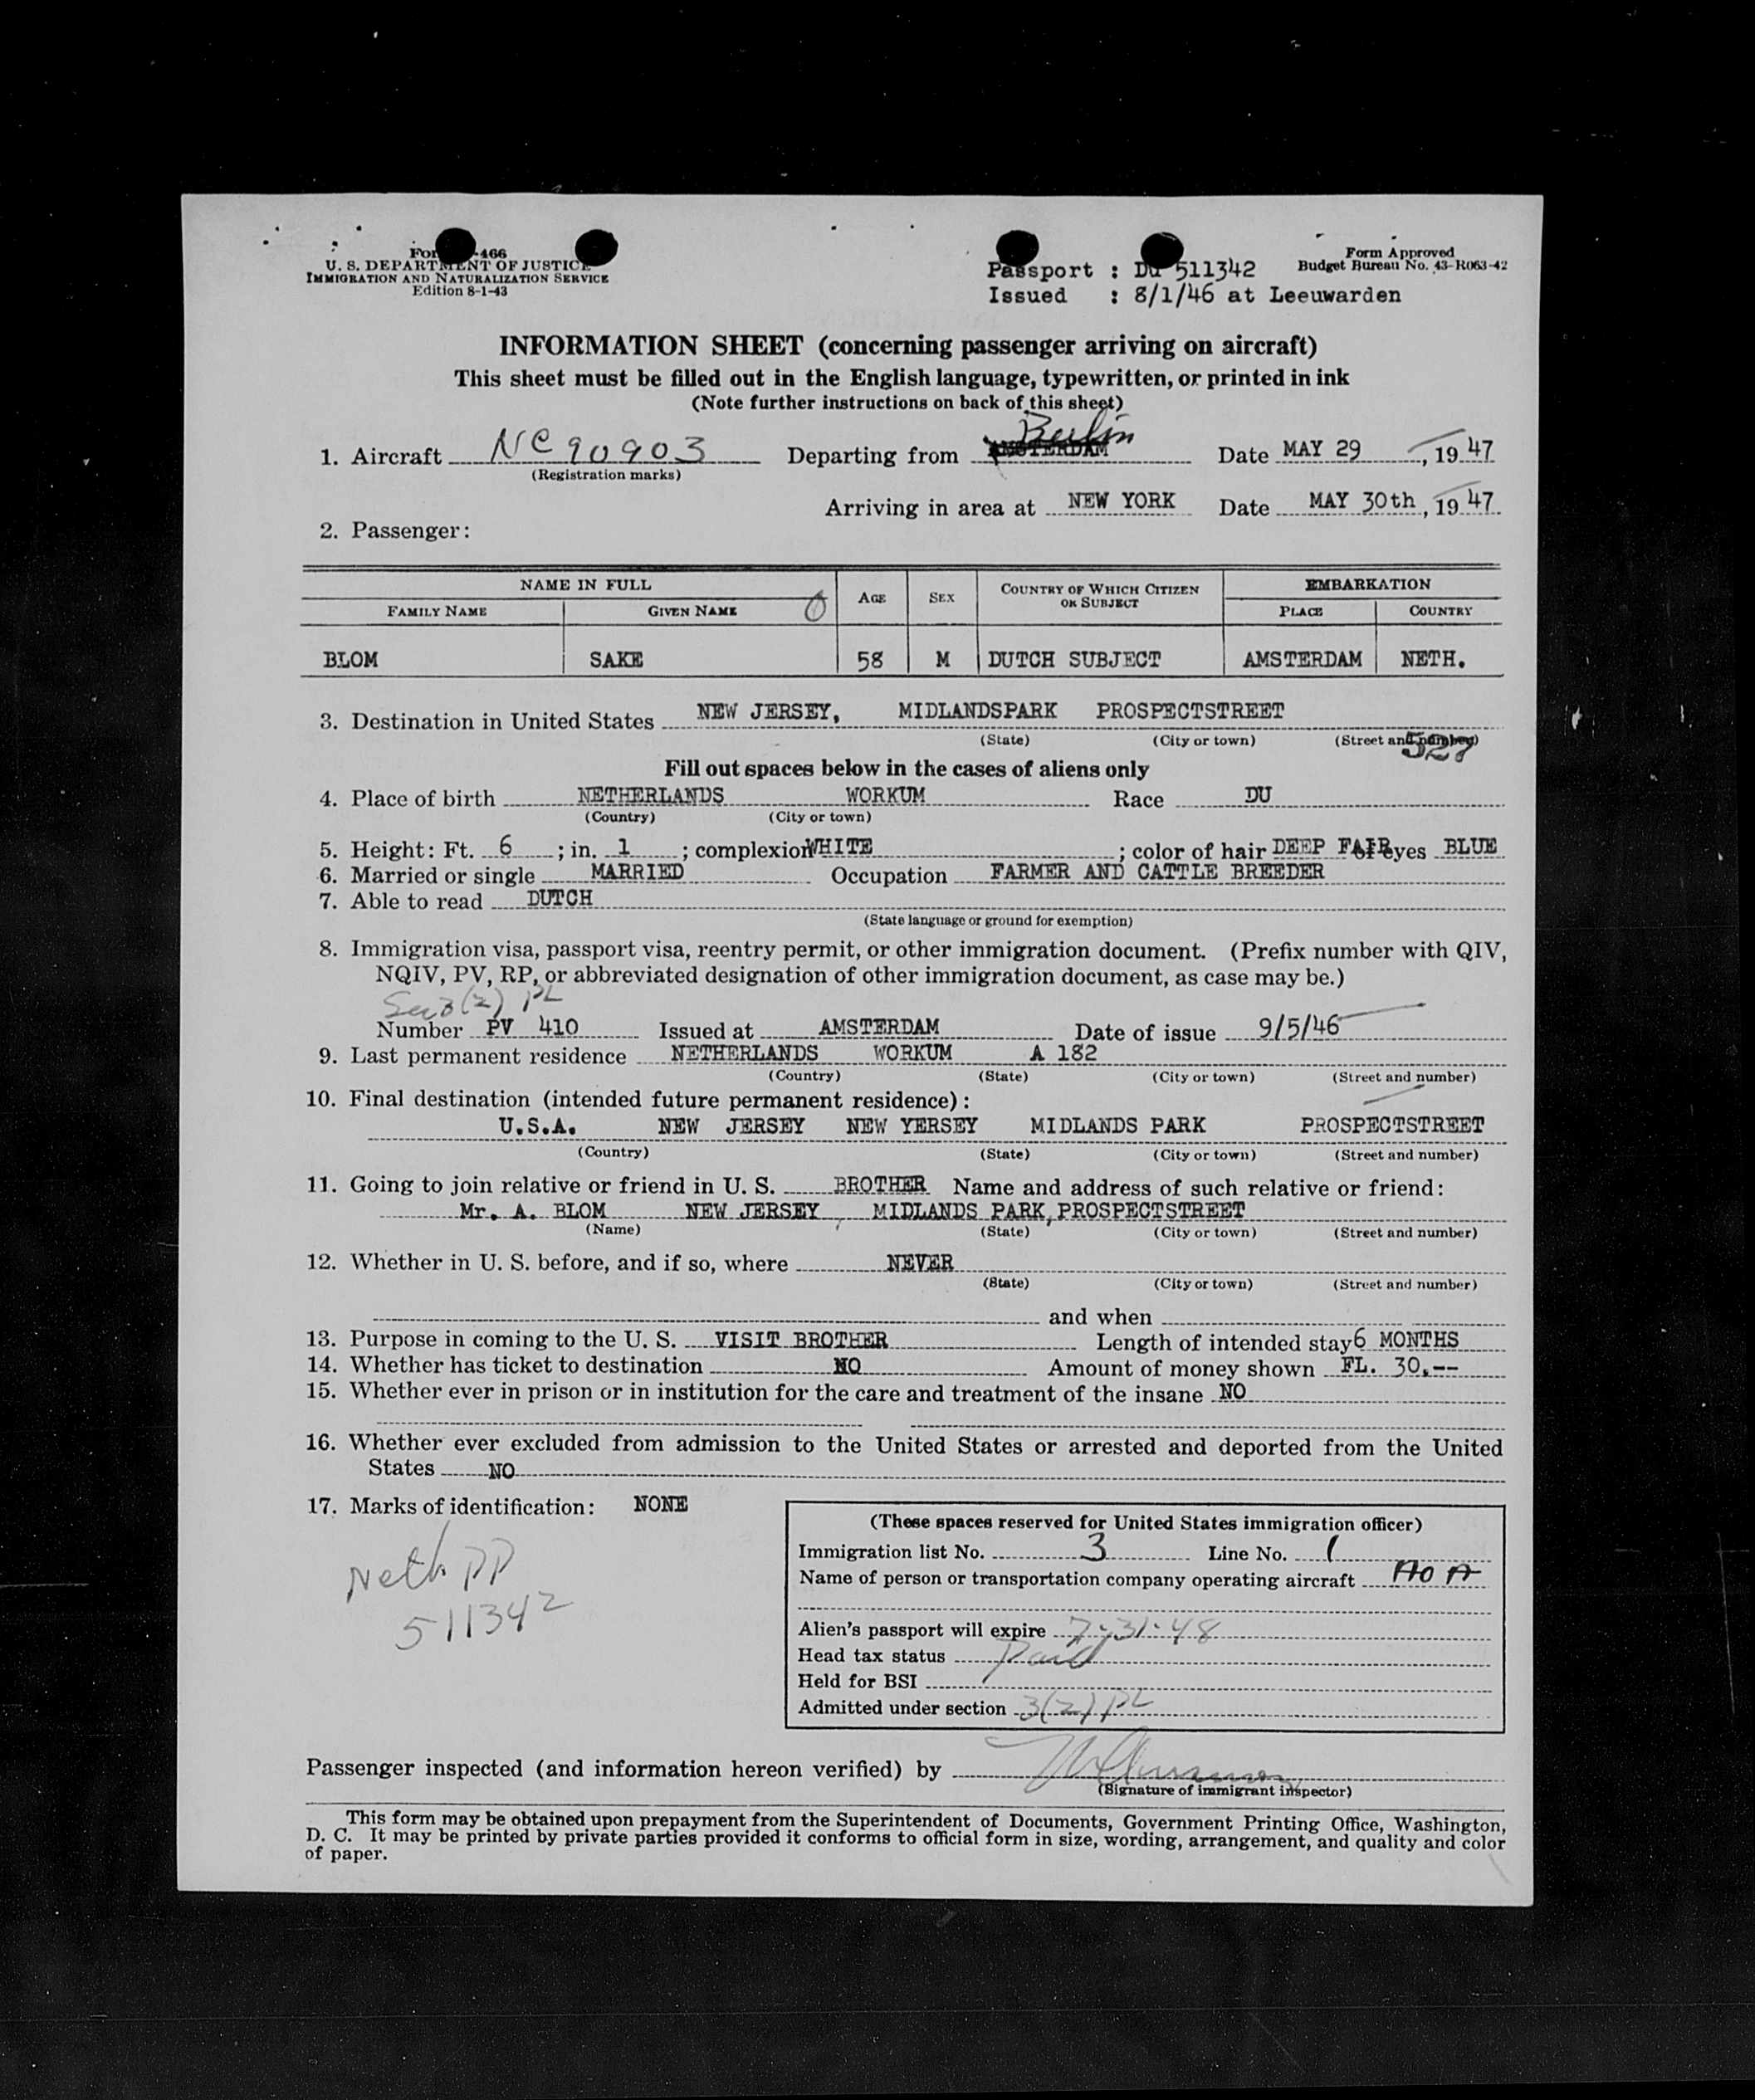 For -466
U. S. DEPARTMENT OF JUSTICE
IMMIGRATION AND NATURALIZATION SERVICE
Edition 8-1-43
Passport : Du 511342
Issued : 8/1/46 at Leeuwarden
Form Approved
Budget Bureau No. 43-R063-42
INFORMATION SHEET (concerning passenger arriving on aircraft)
This sheet must be filled out in the English language, typewritten, or printed in ink
(Note further instructions on back of this sheet)
1. Aircraft NC90903 Departing from AMSTERDAM Berlin Date MAY 29, 1947
(Registration marks)
Arriving in area at NEW YORK Date MAY 30th, 1947
2. Passenger:
NAME IN FULL AGE SEX COUNTRY OF WHICH CITIZEN OR SUBJECT EMBARKATION
FAMILY NAME GIVEN NAME PLACE COUNTRY
BLOM SAKE 58 M DUTCH SUBJECT AMSTERDAM NETH.
3. Destination in United States NEW JERSEY, MIDLANDSPARK PROSPECTSTREET
(State) (City or town) (Street and number) 527
Fill out spaces below in the cases of aliens only
4. Place of birth NETHERLANDS WORKUM Race DU
(Country) (City or town)
5. Height: Ft. 6; in. 1; complexion WHITE; color of hair DEEP FAIR eyes BLUE
6. Married or single MARRIED Occupation FARMER AND CATTLE BREEDER
7. Able to read DUTCH
(State language or ground for exemption)
8. Immigration visa, passport visa, reentry permit, or other immigration document. (Prefix number with QIV,
NQIV, PV, RP, or abbreviated designation of other immigration document, as case may be.)
Sec 3(2) PL
Number PV 410 Issued at AMSTERDAM Date of issue 9/5/46
9. Last permanent residence NETHERLANDS WORKUM A 182
(Country) (State) (City or town) (Street and number)
10. Final destination (intended future permanent residence):
U.S.A. NEW JERSEY NEW YERSEY MIDLANDS PARK PROSPECTSTREET
(Country) (State) (City or town) (Street and number)
11. Going to join relative or friend in U. S. BROTHER Name and address of such relative or friend:
Mr. A. BLOM NEW JERSEY, MIDLANDS PARK, PROSPECTSTREET
(Name) (State) (City or town) (Street and number)
12. Whether in U. S. before, and if so, where NEVER
(State) (City or town) (Street and number)
and when
13. Purpose in coming to the U. S. VISIT BROTHER Length of intended stay 6 MONTHS
14. Whether has ticket to destination NO Amount of money shown FL. 30.--
15. Whether ever in prison or in institution for the care and treatment of the insane NO
16. Whether ever excluded from admission to the United States or arrested and deported from the United
States NO
17. Marks of identification: NONE
Neth PP
511342
(These spaces reserved for United States immigration officer)
Immigration list No. 3 Line No. 1
Name of person or transportation company operating aircraft AOA
Alien's passport will expire 7-31-48
Head tax status Paid
Held for BSI
Admitted under section 3(2) PL
Passenger inspected (and information hereon verified) by
(Signature of immigrant inspector)
This form may be obtained upon prepayment from the Superintendent of Documents, Government Printing Office, Washington,
D. C. It may be printed by private parties provided it conforms to official form in size, wording, arrangement, and quality and color
of paper.